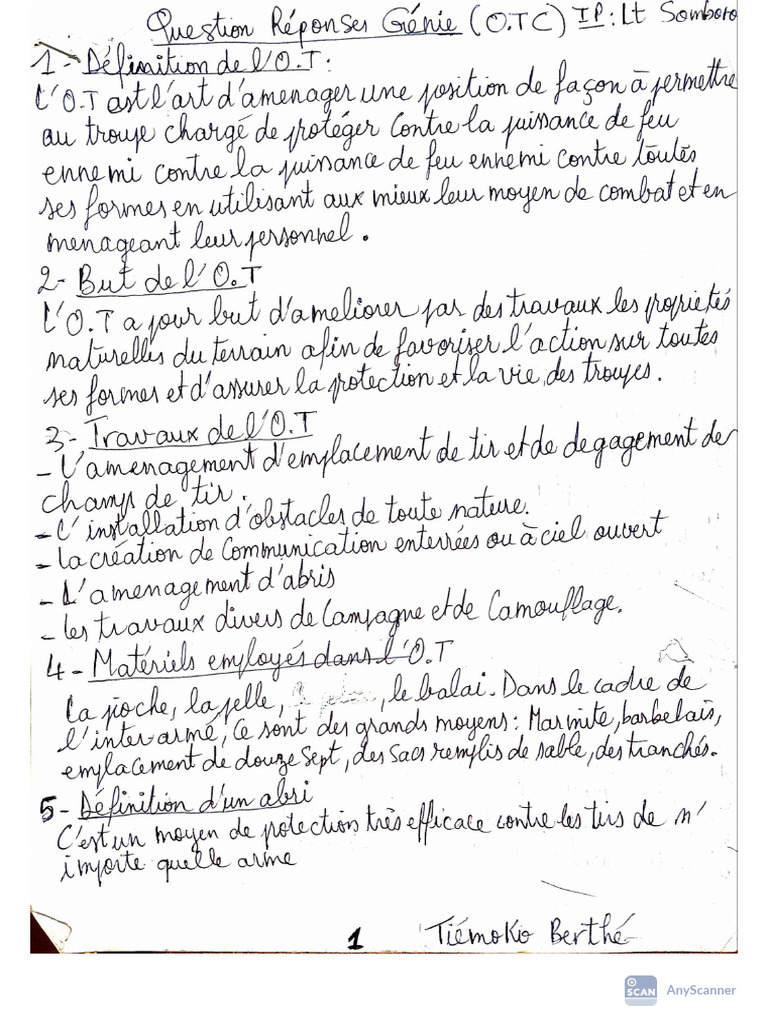 Question Réponses Génie (O.T C) IP : Lt Somboro
1 - Définition de l'O.T :
L'O.T est l'art d'amenager une position de façon à permettre
au troupe chargé de protéger Contre la puissance de feu
ennemi contre la puissance de feu ennemi contre toutes
ses formes en utilisant aux mieux leur moyen de combat et en
menageant leur personnel.
2- But de l'O.T
L'O.T a pour but d'ameliorer par des travaux les propriétés
naturelles du terrain afin de favoriser l'action sur toutes
ses formes et d'assurer la protection et la vie des troupes.
3- Travaux de l'O.T
- L'amenagement d'emplacement de tir et de degagement de
champs de tir.
- L'installation d'obstacles de toute nature.
- la création de Communication enterrées ou à ciel ouvert
- L'amenagement d'abris
- les travaux divers de Campagne et de Camouflage.
4 - Matériels employés dans l'O.T
La pioche, la pelle, , le balai. Dans le cadre de
l'inter-armé, Ce sont des grands moyens : Marmite, barbelais,
emplacement de douze Sept, des Sacs remplis de sable, des tranchés.
5 - Définition d'un abri
C'est un moyen de protection très efficace contre les tirs de n'
importe quelle arme
1 Tiémoko Berthé
SCAN AnyScanner